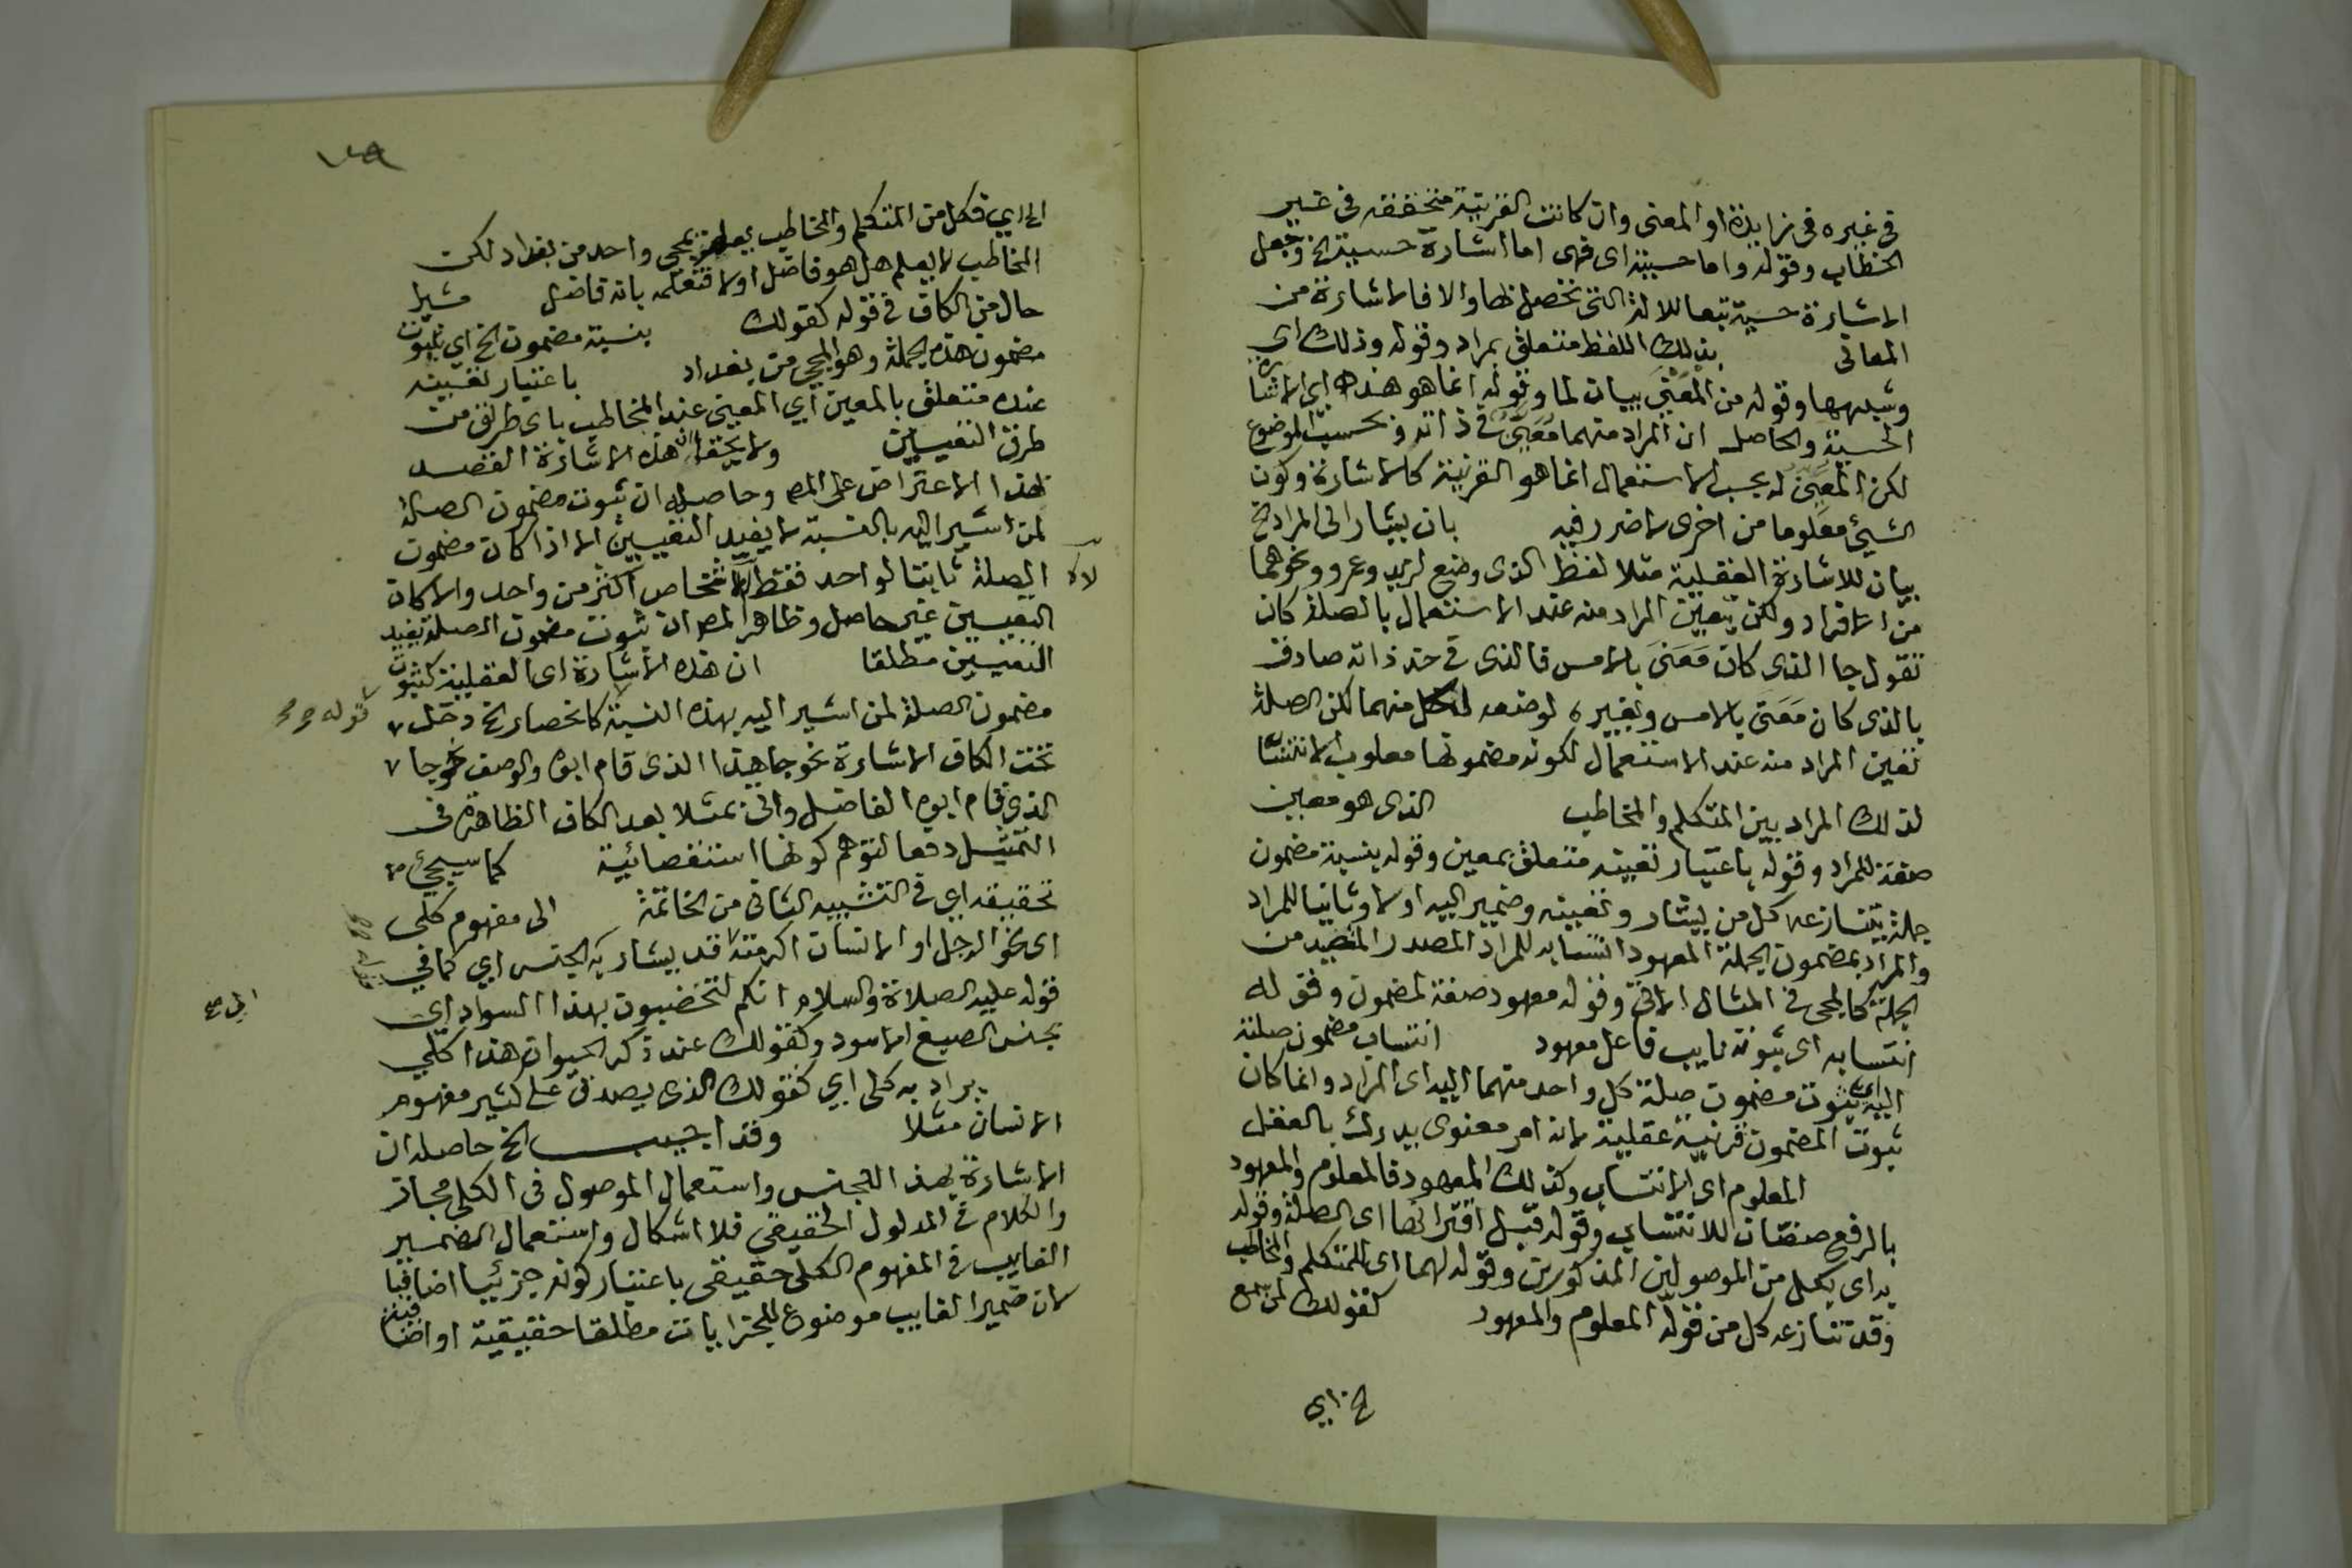 في غيره في نرايدة او المعنى وان كانت القرينة متحققه في غير
الخطاب وقوله واما حسية اى فهى اما اشارة حسية الخ وجعل
الاشارة حسية تبعا للالة التى تحصل بها والا فالاشارة من
المعانى بذلك اللفظ متعلق بمراد وقوله وذلك اى
وقوله من المعنى بيان لما وقوله انما هو هذه اى الاشارة
الحسية والحاصل ان المراد منهما معين في ذاته وبحسب الموضوع
لكن المعين له بحسب الاستعمال انما هو القرينة كالاشارة وكون
الشيئ معلوما من اخرى لا ضرر فيه بان يشار الى المراد الخ
بيان للاشارة العقلية مثلا لفظ الذى وضع لزيد وعمرو ونحوهما
من الافراد ولكن يتعين المراد منه عند الاستعمال بالصلة كان
تقول جا الذى كان معنى بالامس فالذى في حد ذاته صادق
بالذى كان معنى بالامس وبغيره لوضعه لكل منهما لكن الصلة
تعين المراد منه عند الاستعمال لكونه مضمونها معلوب الانتسا
لذلك المراد بين المتكلم والمخاطب الذى هو معين
صفة للمراد وقوله باعتبار تعينه متعلق بمعين وقوله بنسبة مضمون
جملة يتنازعه كل من يشار وتعينه وضمير اليه اولا وثانيا للمراد
والمراد بمضمون الجملة المعهود انتسابه للمراد المصدر المتصيد من
الجملة كالمجى في المثال الاتى وقوله معهود صفة لمضمون وقوله
انتسابه اى ثبوته نايب فاعل معهود انتساب مضمون صلته
اليه اى ثبوت مضمون صلة كل واحد منهما اليه اى المراد وانما كان
ثبوت المضمون قرينة عقلية لانه امر معنوى يدرك بالعقل
المعلوم اى الانتساب وكذلك المعهود فالمعلوم والمعهود
بالرفع صفتان للانتساب وقوله قبل اقترانها اى الصلة وقوله
به اى بكل من الموصولين المذكورين وقوله لهما اى للمتكلم والمخاطب
وقد تنازعه كل من قوله المعلوم والمعهود كقولك لمن سمع
الخ اى
الى اى فكل من المتكلم والمخاطب يعلم بمجى واحد من بغداد لكن
المخاطب لا يعلم هل هو فاضل اولا فتعلمه بانه فاضل مشيرا
حال من الكاف في قوله كقولك بنسبة مضمون الخ اى ثبوت
مضمون هذه الجملة وهو المجى من بغداد باعتبار تعينه
عنده متعلق بالمعين اى المعين عند المخاطب باى طريق من
طرق التعيين ولا يخفى ان هذه الاشارة القصد
بهذا الاعتراض على المص وحاصله ان ثبوت مضمون الصلة
لمن اشير اليه بالنسبة لا يفيد التعيين الا اذا كان مضمون
الصلة ثابتا لواحد فقط لا شخاص اكثر من واحد والا كان
التعيين غير حاصل وظاهر المص ان ثبوت مضمون الصلة يفيد
التعيين مطلقا ان هذه الاشارة اى العقلية كثبوت
مضمون الصلة لمن اشير اليه بهذه النسبة كانحصار الخ دخل
تحت الكاف الاشارة نحو جا هذا الذى قام ابوه والوصف نحو جا
الذى قام ابوه الفاضل واتى بمثلا بعد الكاف الظاهرة في
التمثيل دفعا لتوهم كونها استقصائية كما سيجئ
تحقيقه اى في التنبيه الثانى من الخاتمة الى مفهوم كلى
اى نحو الرجل او الانسان اكرمته قد يشار به الجنس اى كما في
قوله عليه الصلاة والسلام انكم لتخضبون بهذا السواد اى
بجنس الصبغ الاسود وكقولك عند ذكر الحيوان هذا كلى
يراد به كلى اى كقولك الذى يصدق على كثير مفهوم
الانسان مثلا وقد اجيب الخ حاصله ان
الاشارة بهذا للجنس واستعمال الموصول في الكلى مجاز
والكلام في المدلول الحقيقى فلا اشكال واستعمال الضمير
الغايب في المفهوم الكلى حقيقى باعتبار كونه جزئيا اضافيا
لان ضمير الغايب موضوع للجزايات مطلقا حقيقية او اضافية